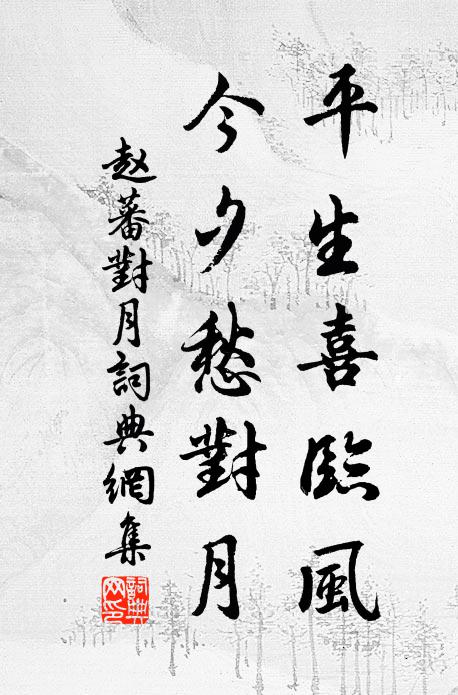 平生喜臨風
今夕愁對月
赵蕃對月詞典網集